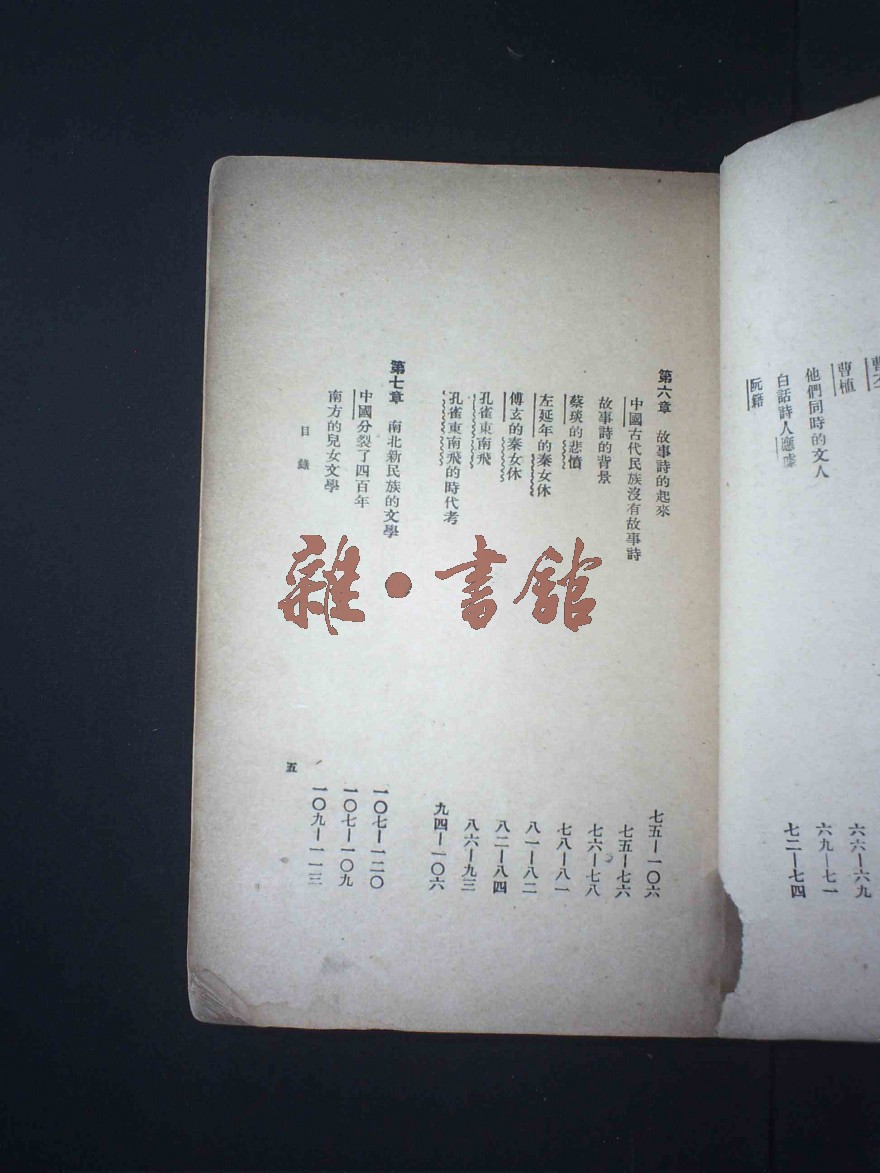 曹植
他們同時的文人 六六—六九
白話詩人應璩 六九—七一
阮籍 七二—七四
第六章 故事詩的起來 七五—一〇六
中國古代民族沒有故事詩 七五—七六
故事詩的背景 七六—七八
蔡琰的悲憤 七八—八一
左延年的秦女休 八一—八二
傅玄的秦女休 八二—八四
孔雀東南飛 八六—九三
孔雀東南飛的時代考 九四—一〇六
第七章 南北新民族的文學 一〇七—一二〇
中國分裂了四百年 一〇七—一〇九
南方的兒女文學 一〇九—一一三
目錄 五
雜·書館